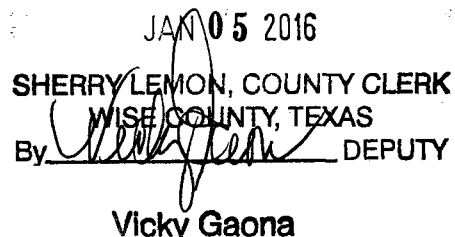 JAN 05 2016
SHERRY LEMON, COUNTY CLERK
WISE COUNTY, TEXAS
By DEPUTY
Vicky Gaona